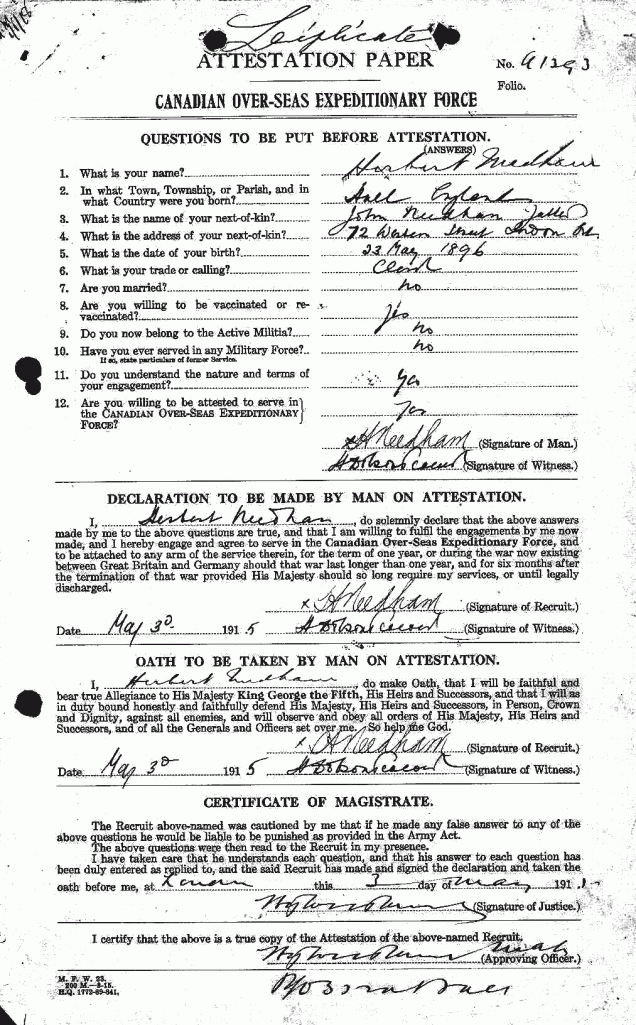 Triplicate
ATTESTATION PAPER
No.
Folio.
CANADIAN OVER-SEAS EXPEDITIONARY FORCE
QUESTIONS TO BE PUT BEFORE ATTESTATION.
(ANSWERS)
1. What is your name? Herbert Needham
2. In what Town, Township, or Parish, and in what Country were you born?
3. What is the name of your next-of-kin? John Needham
4. What is the address of your next-of-kin? 72 Street London
5. What is the date of your birth? 23 May 1896
6. What is your trade or calling?
7. Are you married? no
8. Are you willing to be vaccinated or re-vaccinated? yes
9. Do you now belong to the Active Militia? no
10. Have you ever served in any Military Force? no
If so, state particulars of former Service.
11. Do you understand the nature and terms of your engagement? yes
12. Are you willing to be attested to serve in the CANADIAN OVER-SEAS EXPEDITIONARY FORCE? yes
x H Needham (Signature of Man.)
(Signature of Witness.)
DECLARATION TO BE MADE BY MAN ON ATTESTATION.
I, Herbert Needham, do solemnly declare that the above answers
made by me to the above questions are true, and that I am willing to fulfil the engagements by me now
made, and I hereby engage and agree to serve in the Canadian Over-Seas Expeditionary Force, and
to be attached to any arm of the service therein, for the term of one year, or during the war now existing
between Great Britain and Germany should that war last longer than one year, and for six months after
the termination of that war provided His Majesty should so long require my services, or until legally
discharged.
x H Needham (Signature of Recruit.)
Date May 3d 1915 (Signature of Witness.)
OATH TO BE TAKEN BY MAN ON ATTESTATION.
I, Herbert Needham, do make Oath, that I will be faithful and
bear true Allegiance to His Majesty King George the Fifth, His Heirs and Successors, and that I will as
in duty bound honestly and faithfully defend His Majesty, His Heirs and Successors, in Person, Crown
and Dignity, against all enemies, and will observe and obey all orders of His Majesty, His Heirs and
Successors, and of all the Generals and Officers set over me. So help me God.
x H Needham (Signature of Recruit.)
Date May 3d 1915 (Signature of Witness.)
CERTIFICATE OF MAGISTRATE.
The Recruit above-named was cautioned by me that if he made any false answer to any of the
above questions he would be liable to be punished as provided in the Army Act.
The above questions were then read to the Recruit in my presence.
I have taken care that he understands each question, and that his answer to each question has
been duly entered as replied to, and the said Recruit has made and signed the declaration and taken the
oath before me, at London this 3 day of May 191
(Signature of Justice.)
I certify that the above is a true copy of the Attestation of the above-named Recruit.
(Approving Officer.)
M. F. W. 23.
200 M.—8-15.
H.Q. 1772-39-841.